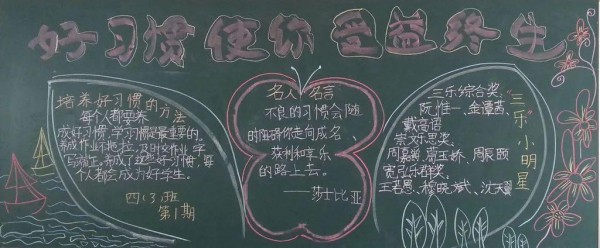 好习惯使你受益终生
培养好习惯的方法
每个人都要养
成好习惯,学习惯是最重要的,
养成作业不拖拉,及时交作业,字
写端正,养成了这些好习惯,每
个人都会成为好学生。
四(3)班
第1期
名人名言
不良的习惯会随
时阻碍你走向成名、
获利和享乐
的路上去。
——莎士比亚
三乐综合奖、
阮惟一、金谭茜、
戴高语
崇文乐思奖、
周嘉蔚 贾玉娇、周辰颐
贵弘乐群奖、
王若恩、程晓斌、沈天翼
“三乐”小明星